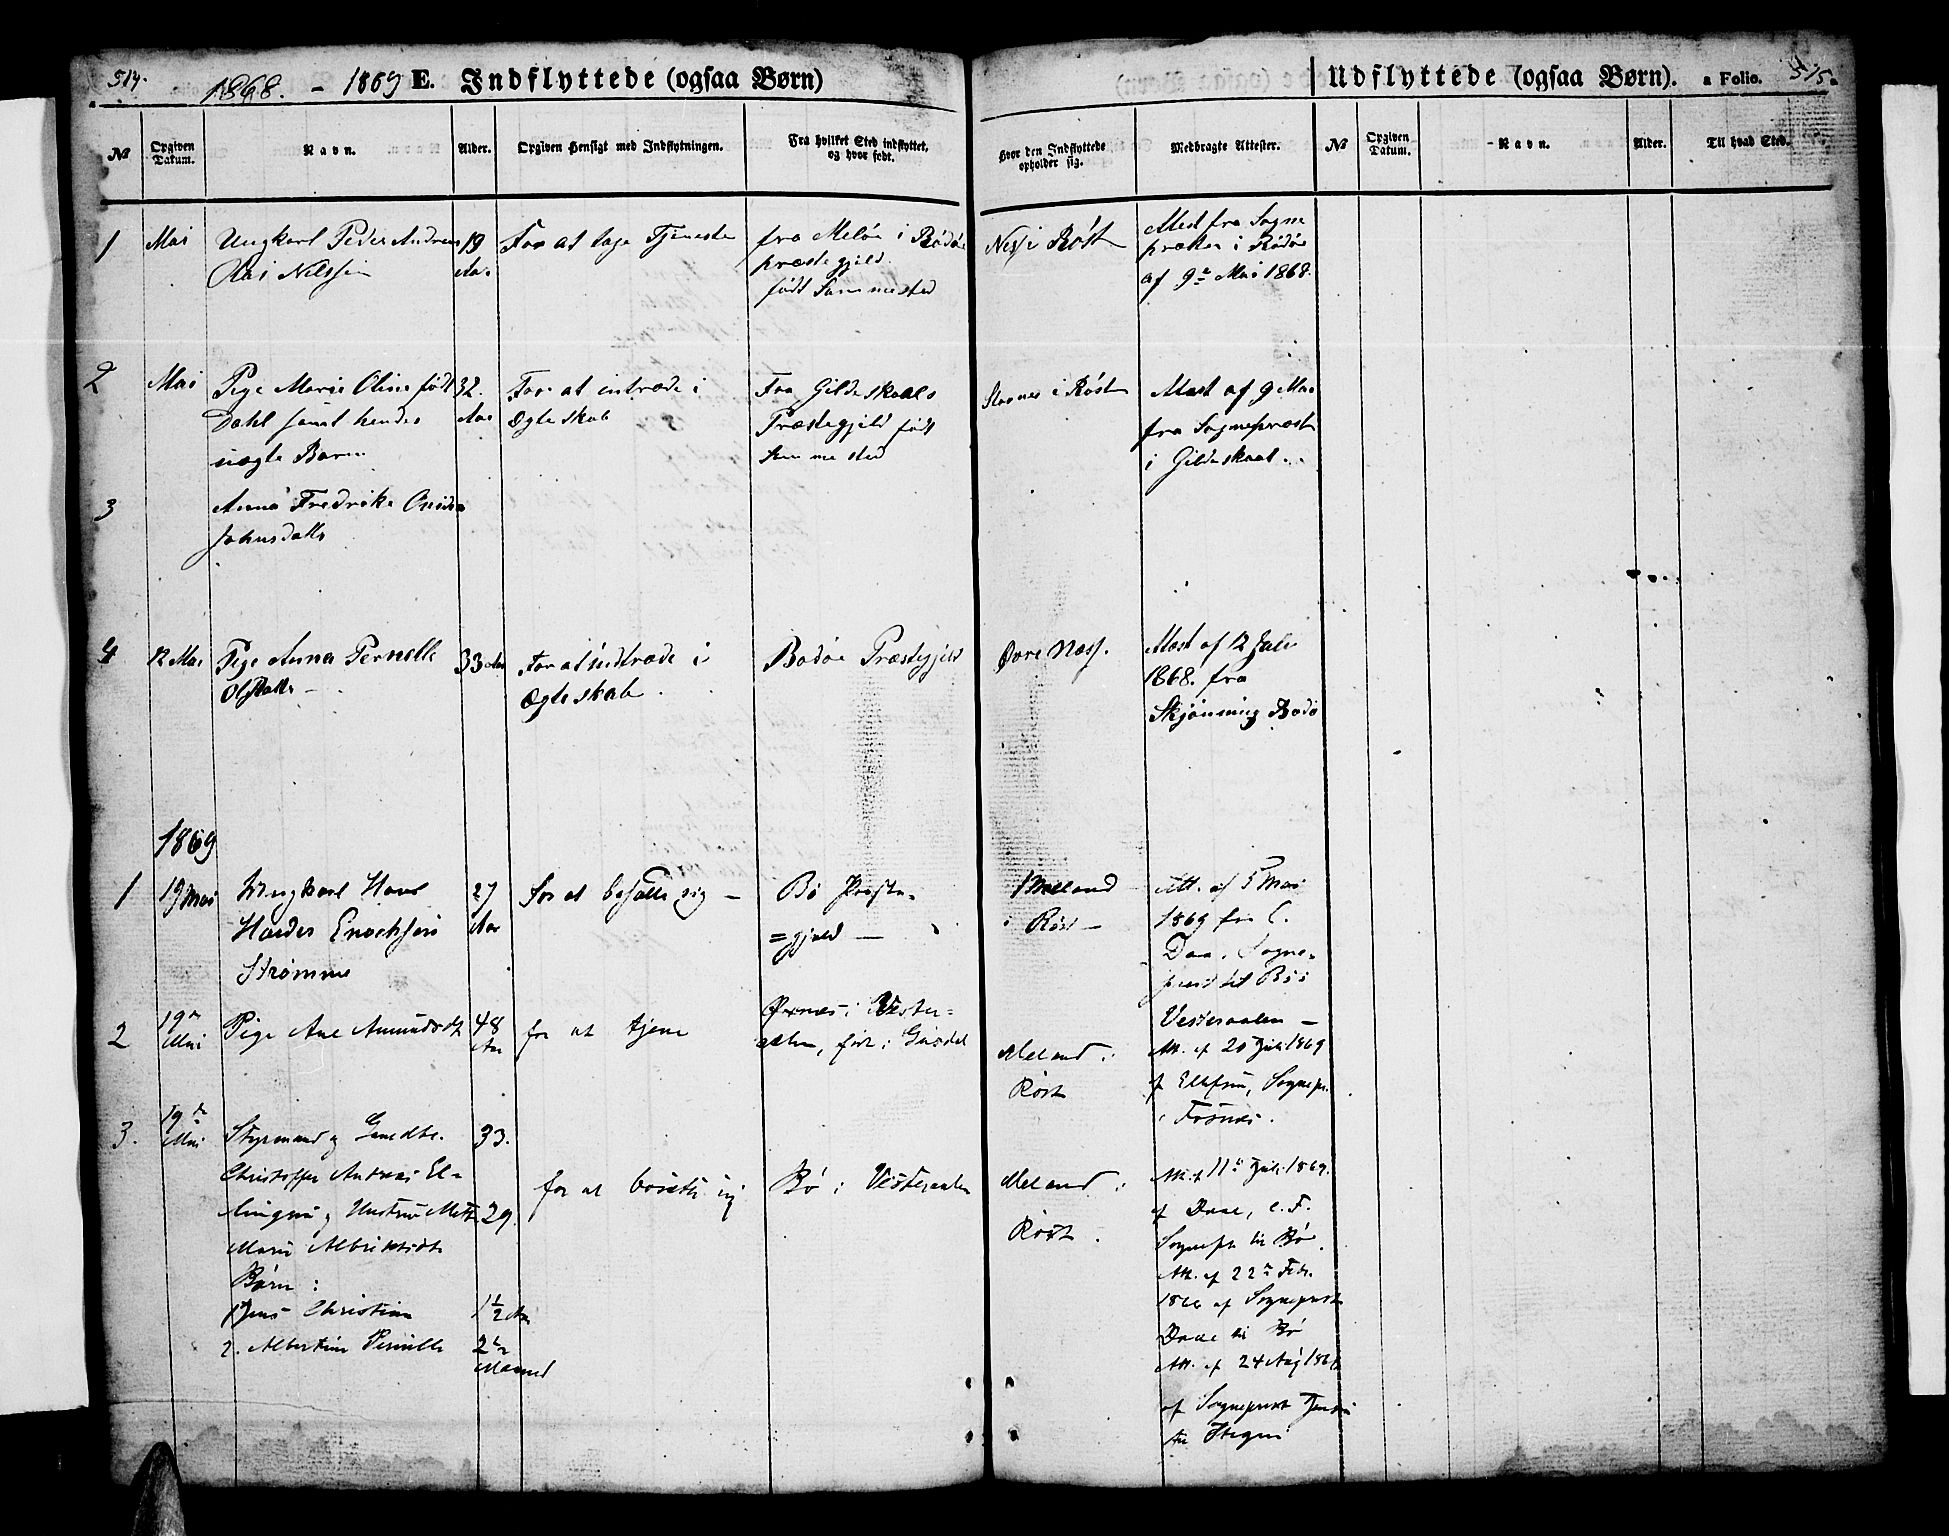 514.
1868. - 1869 E. Indflyttede (ogsaa Børn)
Udflyttede (ogsaa Børn). a Folio. 515.
No
Opgiven Datum.
Navn.
Alder.
Opgiven Hensigt med Indflytningen.
Fra hvilket Sted indflyttet, og hvor født.
Hvor den Indflyttede opholder sig.
Medbragte Attester.
No
Opgiven Datum.
Navn.
Alder.
Til hvad Sted.
1 Mai Ungkarl Peder Andreas
Nilssen
19
Aar
For at tage Tjeneste
fra Meløe i Rødøe
præstegjeld
født Sammested
Nes i Røst
Attest fra Sogne
præsten i Rødøe
af 9de Mai 1868.
2 Mai Pige Marie Oline født
Dahl samt hendes
uægte Barn
32.
Aar
For at intræde i
Ægteskab
Fra Gildeskaals
Præstegjeld født
Sammested
i Røst
Attest af 9 Mai
fra Sognepræst
i Gildeskaal.
3
Anna Fredrike
Johnsdatter
4 12 Mai Pige Anna Pernelle
Olsdatter
33 Aar
For at indtræde i
Ægteskab.
Bodøe Præstegjeld
Øvre Næss.
Attest af 12 Juli
1868. fra
Skjönning Bodø
1869
1 19 Mai Ungkarl Hans
Enochsen
Strømme
27
Aar
for at bosætte sig -
Bö Præste
=gjeld -
Melland
i Røst -
Att. af 5 Mai
1869 fra C.
Daae, Sogne-
præst til Bö i
Vesteraalen -
2 19de Mai Pige Ane Amundsdt
48
Aar
for at tjene
i Vester=
aalen, født i
Meland i
Røst
Att. af 20 Juli 1869
af Ellefsen, Sognepr.
i Fosnes.
3. 19de Mai Styrmand og
Christoffer Andreas El-
lingsen og Hustru Mette
Marie Albriktsdt
Børn:
1) Jens Christian
2. Albertine Pernille
33.
29.
1½ Aar
Maaned
for at bosette sig
Bø i Vesteraalen
Meland i
Røst.
Att. af 11te Juli 1869.
af Daae, C. F.
Sognepr. til Bø.
Att. af 22de Febr.
1866 af Sognepræst
Daae til Bø
Att. af 24 Aug 1866
af Sognepræst Jensen
til